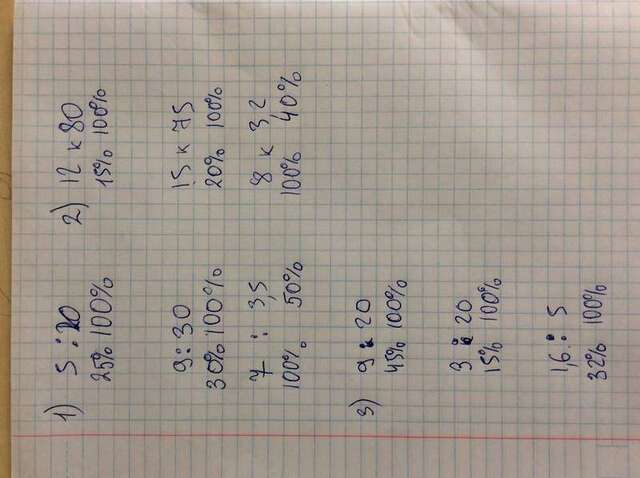 1) 5 : 20
25% 100%
9 : 30
30% 100%
7 : 3,5
100% 50%
2) 12 к 80
15% 100%
15 к 75
20% 100%
8 к 3,2
100% 40%
3) 9 : 20
45% 100%
3 : 20
15% 100%
1,6 : 5
32% 100%